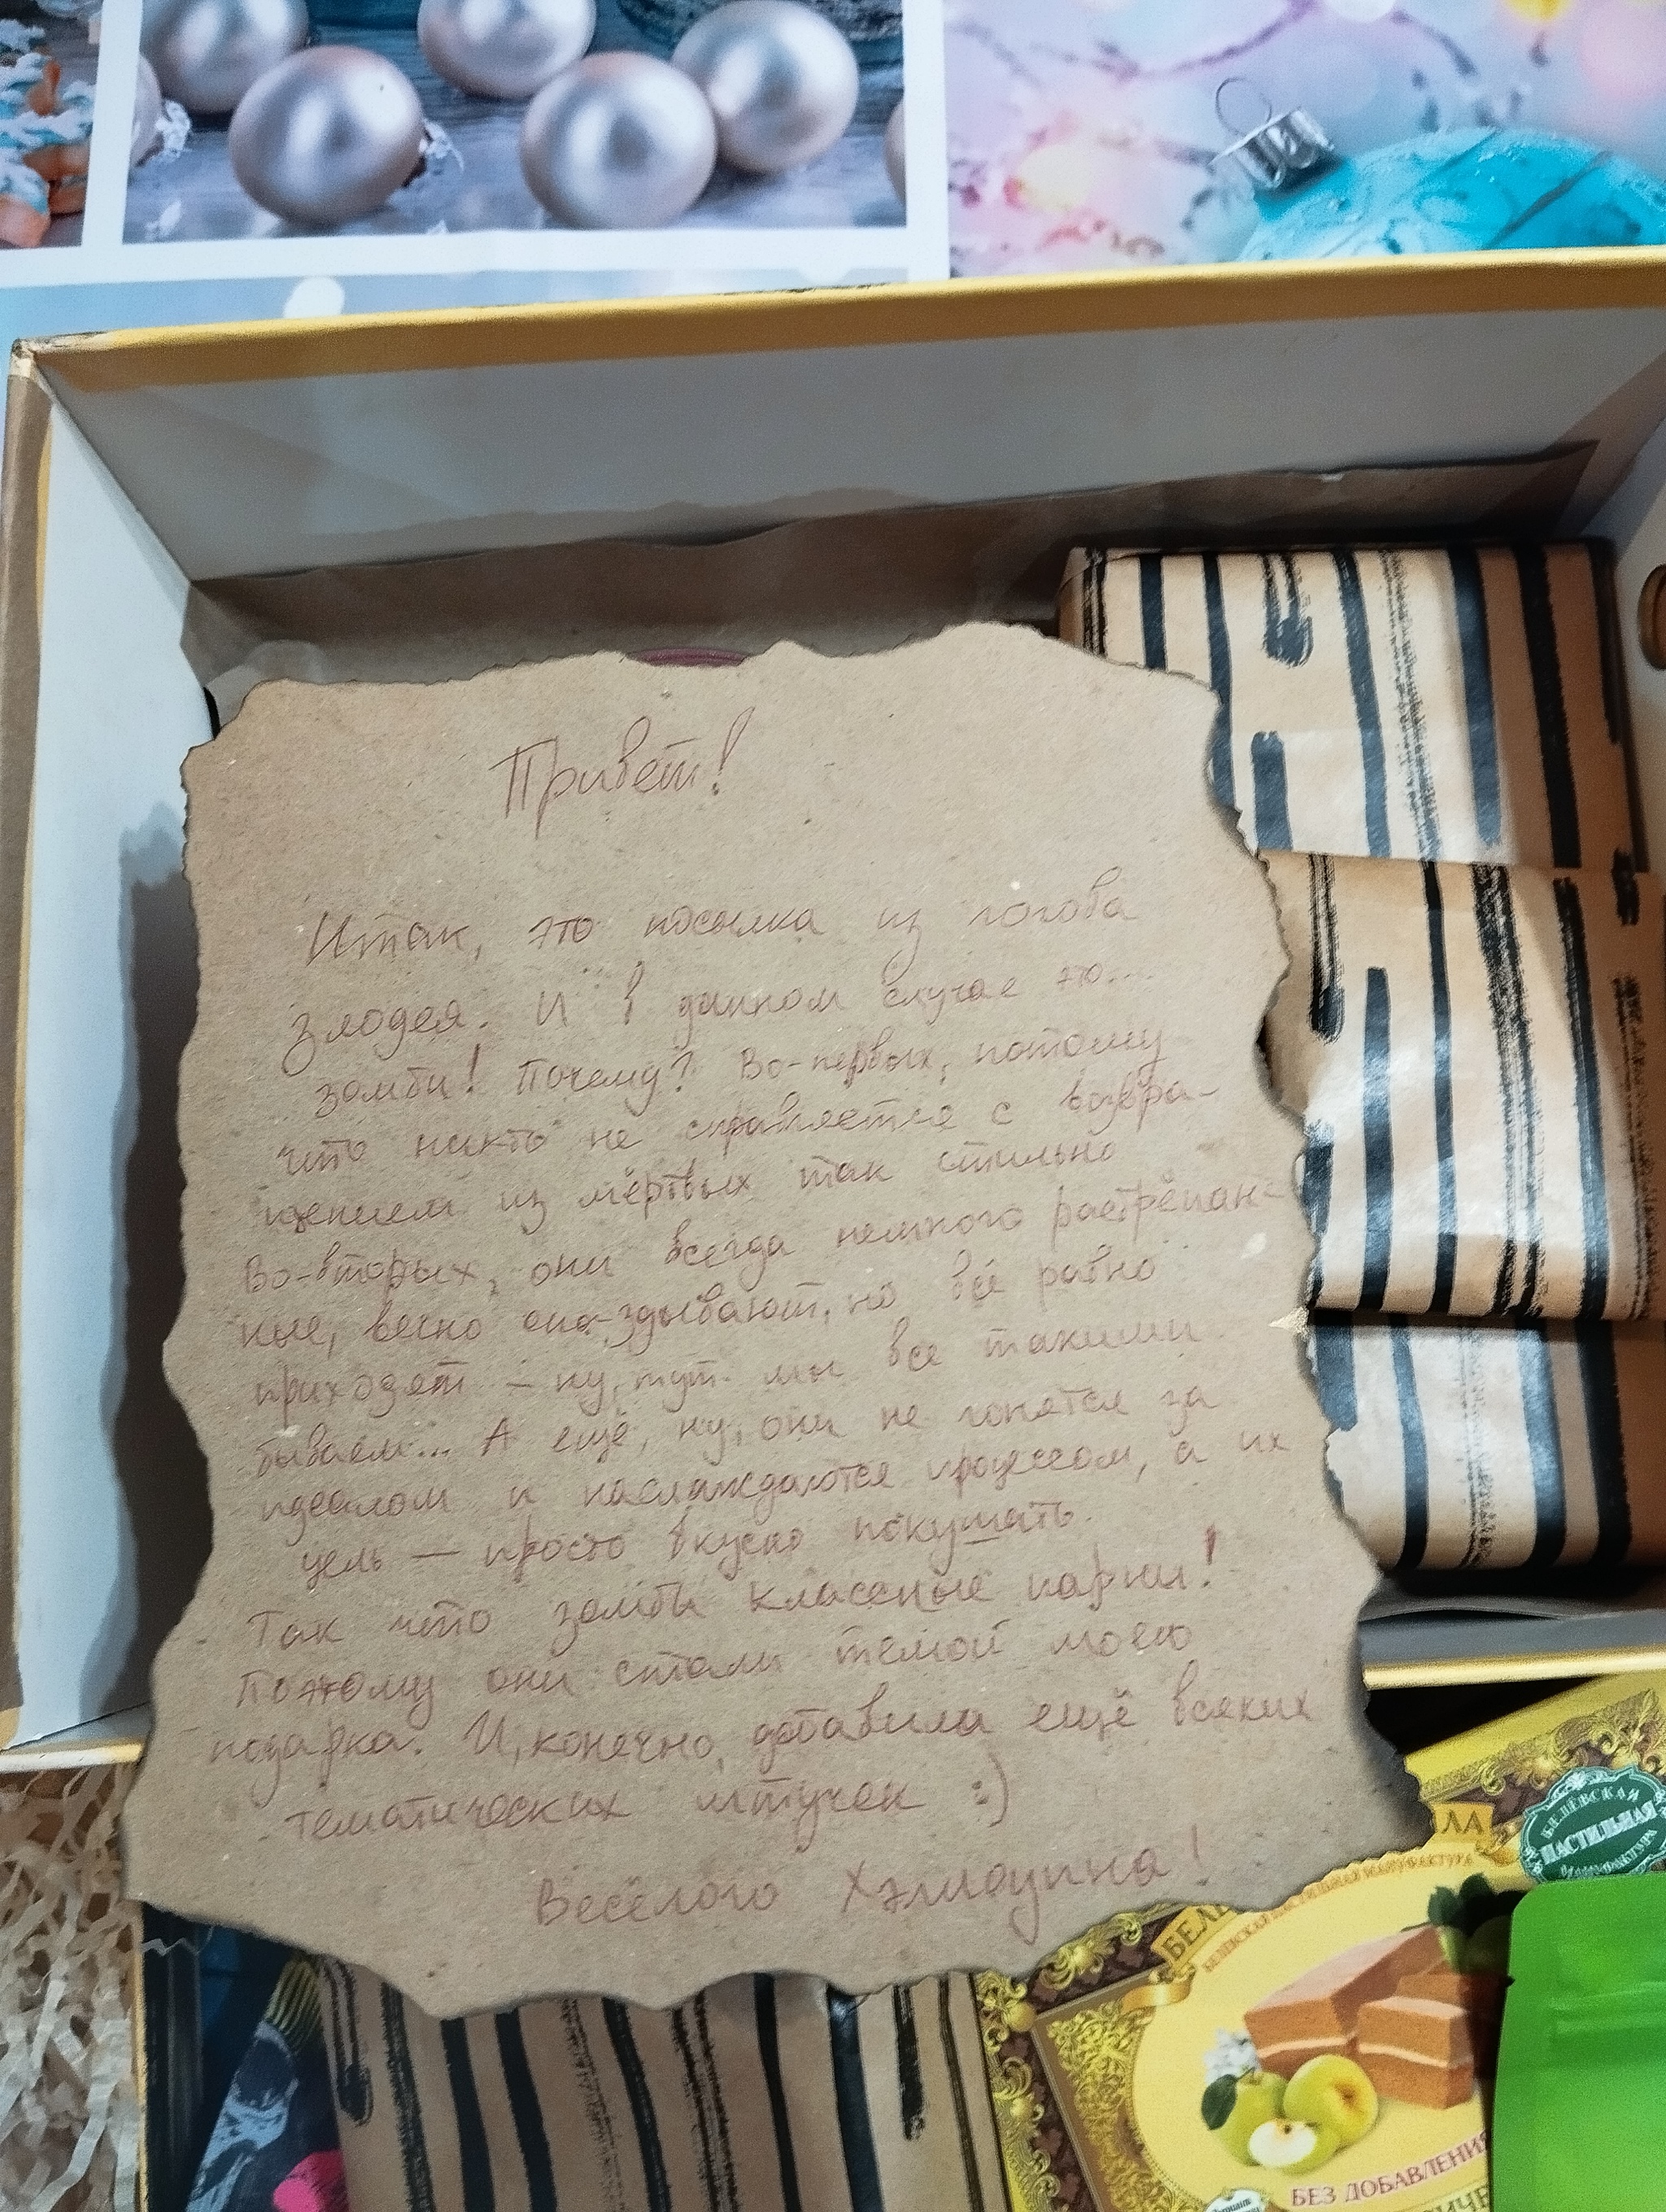 Привет!
Итак, это посылка из логова
злодея. И в данном случае это...
зомби! Почему? Во-первых, потому
что никто не справляется с возвра-
щением из мёртвых так стильно
Во-вторых, они всегда немного растрёпан-
ные, вечно опа-здывают, но всё равно
приходят – ну, тут мы все такими
бываем... А ещё, ну, они не гонятся за
идеалом и наслаждаются процессом, а их
цель — просто вкусно покушать.
Так что зомби классные парни!
Поэтому они стали темой моего
подарка. И, конечно, добавила ещё всяких
тематических штучек :)
Весёлого Хэллоуина!
ЛА
БЕЛЁВСКАЯ
ПАСТИЛЬНАЯ
МАНУФАКТУРА
БЕЛЕ
БЕЛЁВСКАЯ ПАСТИЛЬНАЯ МАНУФАКТУРА
БЕЗ ДОБАВЛЕНИЯ